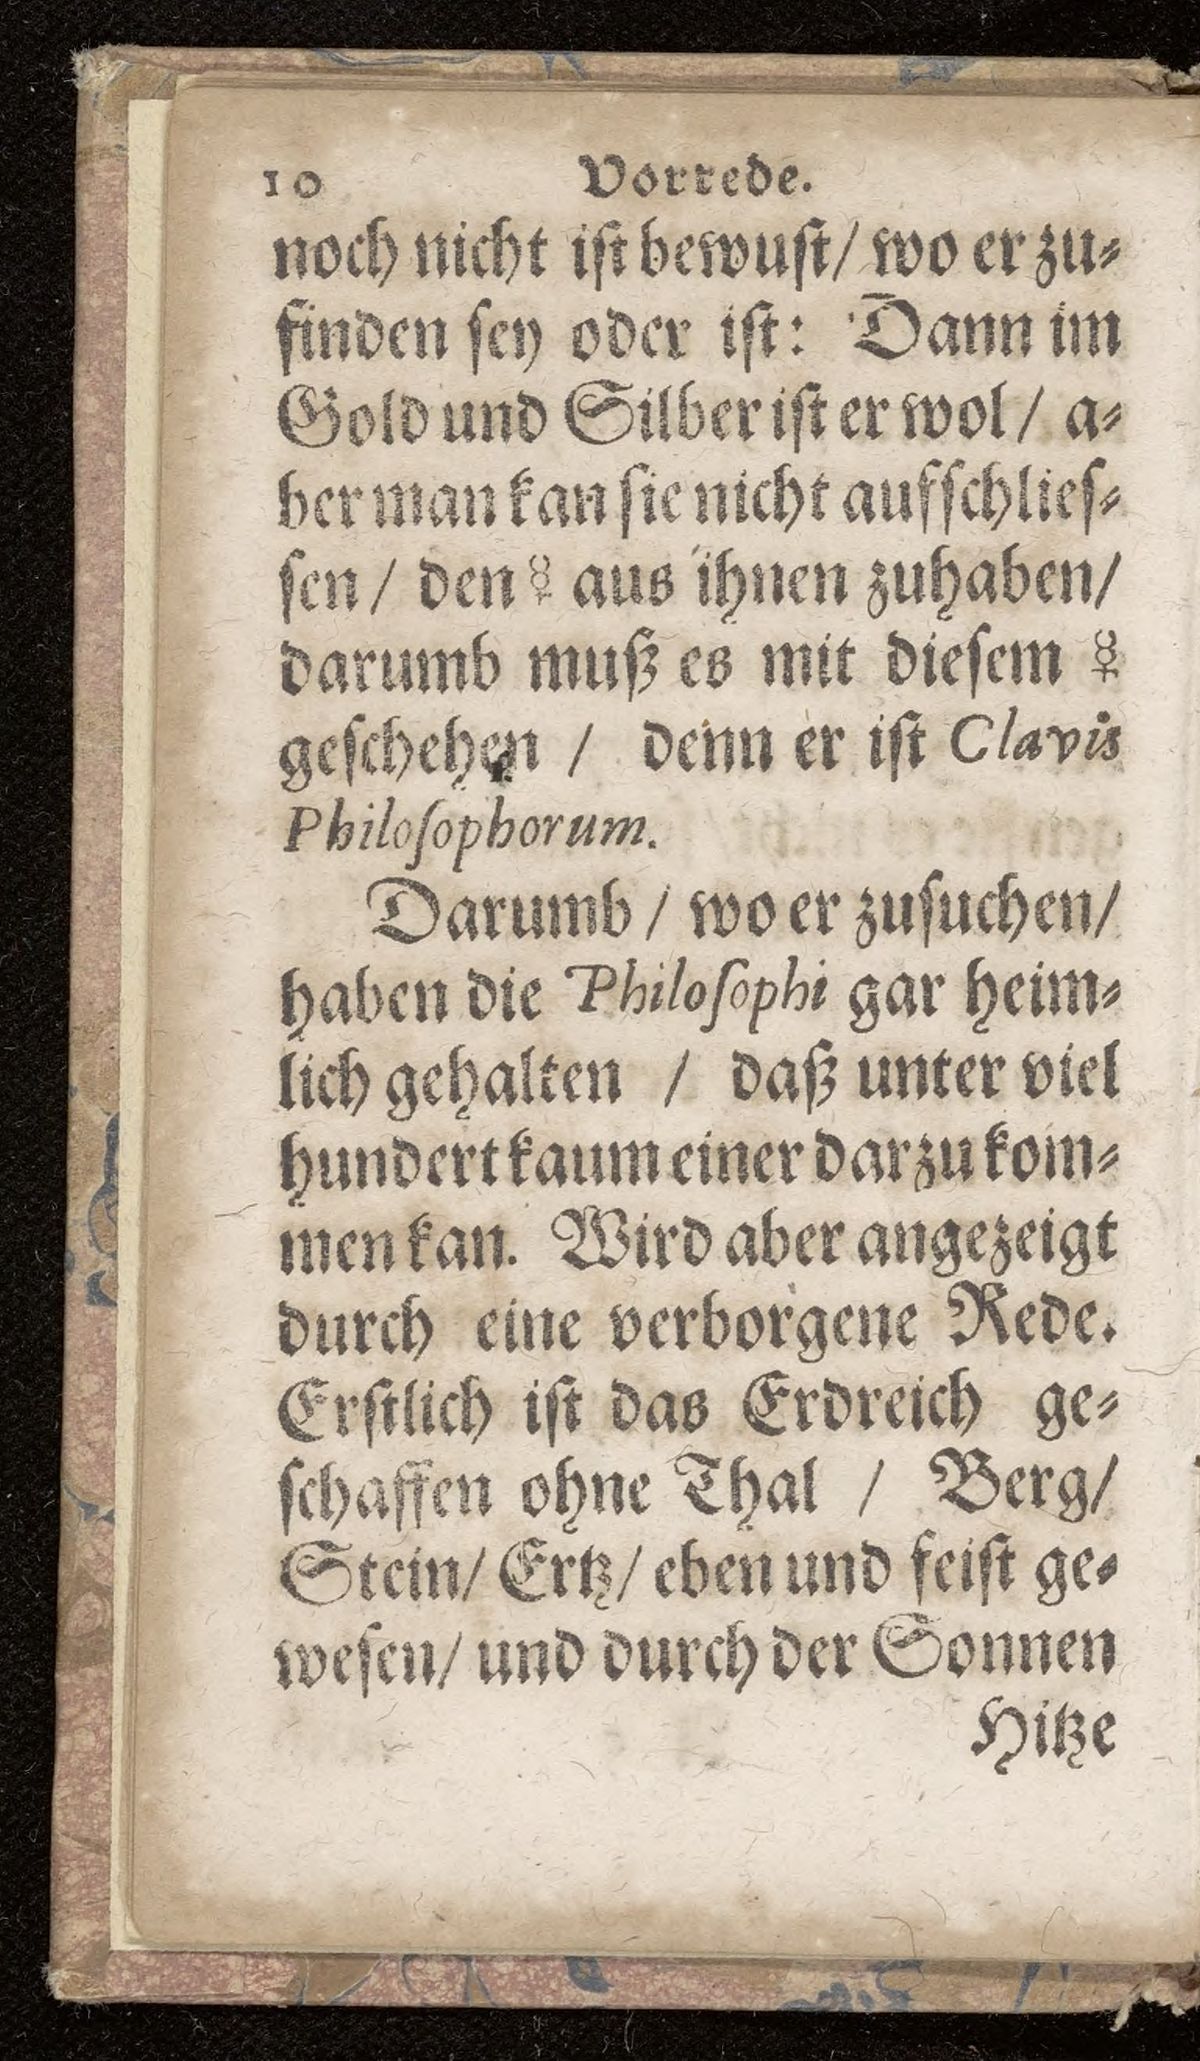 10 Vorrede.
noch nicht iſt bewuſt/ wo er zu⸗
finden ſey oder iſt: Dann im
Gold und Silber iſt er wol/ a⸗
ber man kan ſie nicht aufſchlieſ⸗
ſen/ den ☿ aus ihnen zuhaben/
darumb muß es mit dieſem ☿
geſchehen / denn er iſt Clavis
Philoſophorum.
Darumb / wo er zuſuchen/
haben die Philoſophi gar heim⸗
lich gehalten / daß unter viel
hundert kaum einer darzu kom⸗
men kan. Wird aber angezeigt
durch eine verborgene Rede.
Erſtlich iſt das Erdreich ge⸗
ſchaffen ohne Thal / Berg/
Stein/ Ertz/ eben und feiſt ge⸗
weſen/ und durch der Sonnen
Hitze